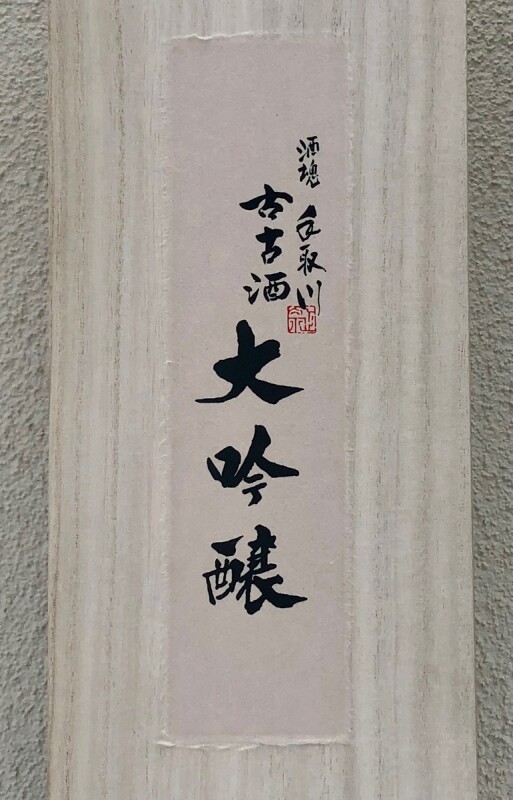 酒魂 手取川
古古酒
大吟醸